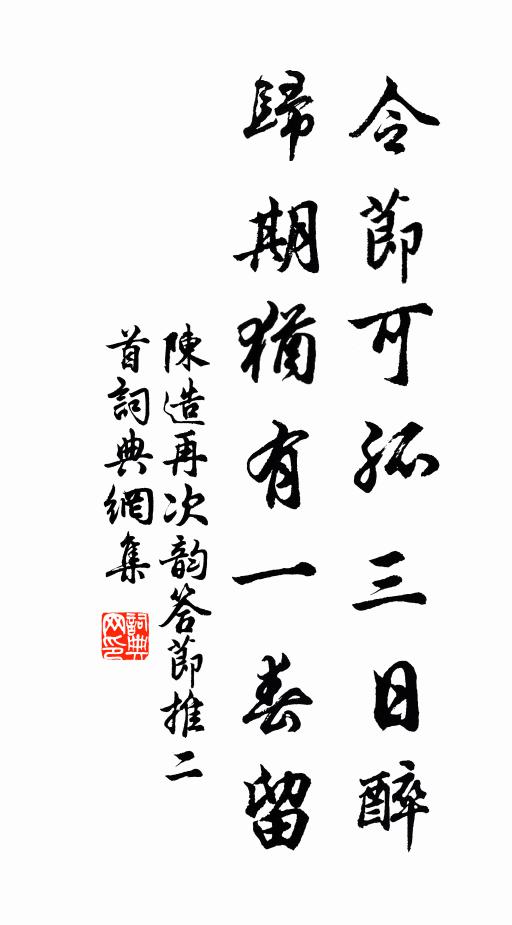 令節可孤三日醉
歸期猶有一春留
陳造再次韵答節推二
首詞典網集
詞典网印